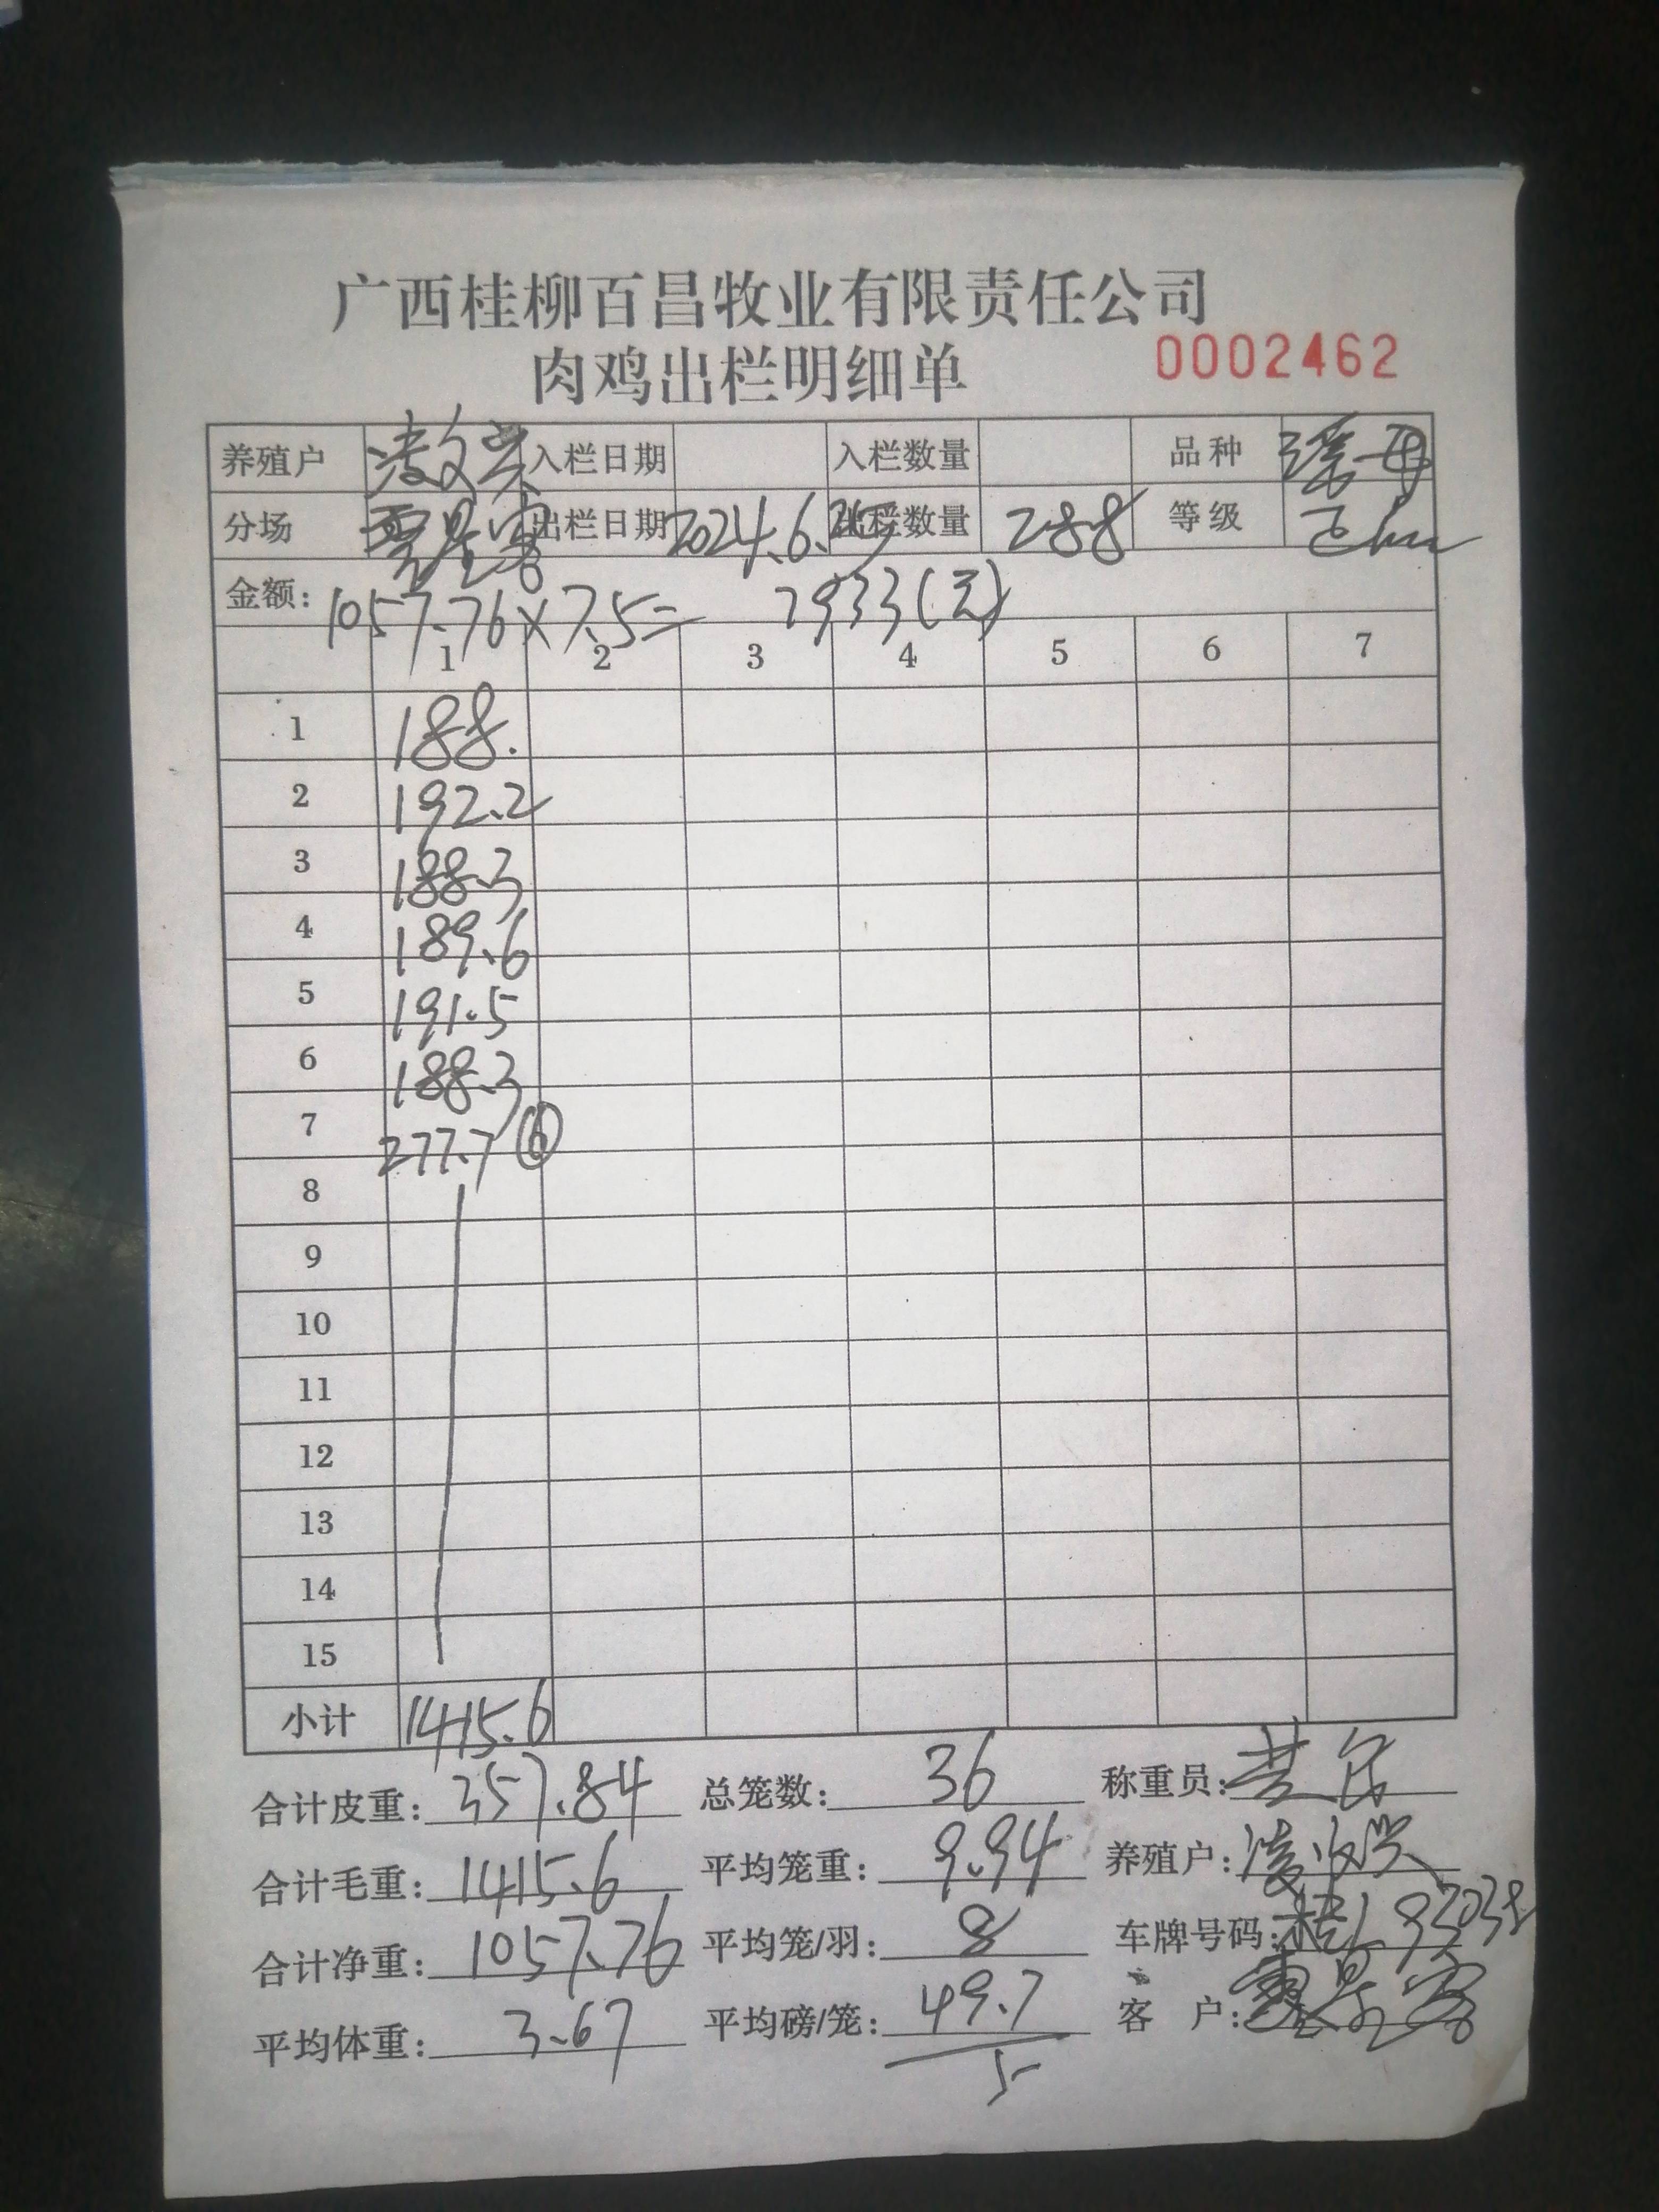 广西桂柳百昌牧业有限责任公司
肉鸡出栏明细单 0002462
养殖户 入栏日期 入栏数量 品种 瑶母
分场 出栏日期 2024.6. 出栏数量 288 等级
金额: 1057.76×7.5= 7933(元)
1 2 3 4 5 6 7
1 188.
2 192.2
3 188.3
4 189.6
5 191.5
6 188.3
7 277.7 ⑥
8
9
10
11
12
13
14
15
小计 1415.6
合计皮重: 357.84 总笼数: 36 称重员:
合计毛重: 1415.6 平均笼重: 9.94 养殖户:
合计净重: 1057.76 平均笼/羽: 8 车牌号码:
平均体重: 3.67 平均磅/笼: 49.7 客 户:
5